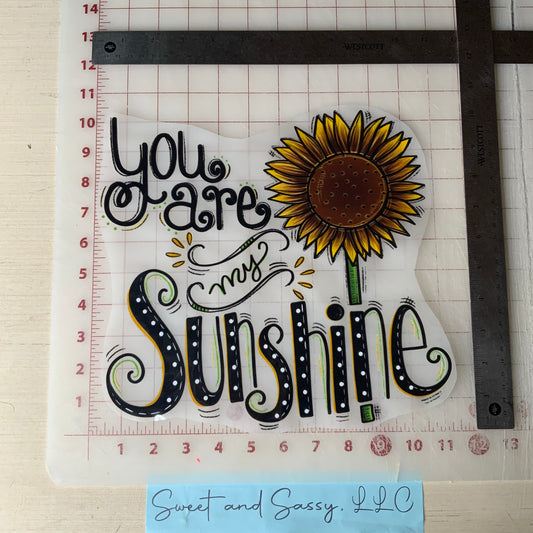 14
WESTCOTT
12
11
10
9
8
7
6
5
4
3
2
1
WESTCOTT
You
are
my
Sunshine
1 2 3 4 5 6 7 8 9 10 11 12 13
Sweet and Sassy, LLC